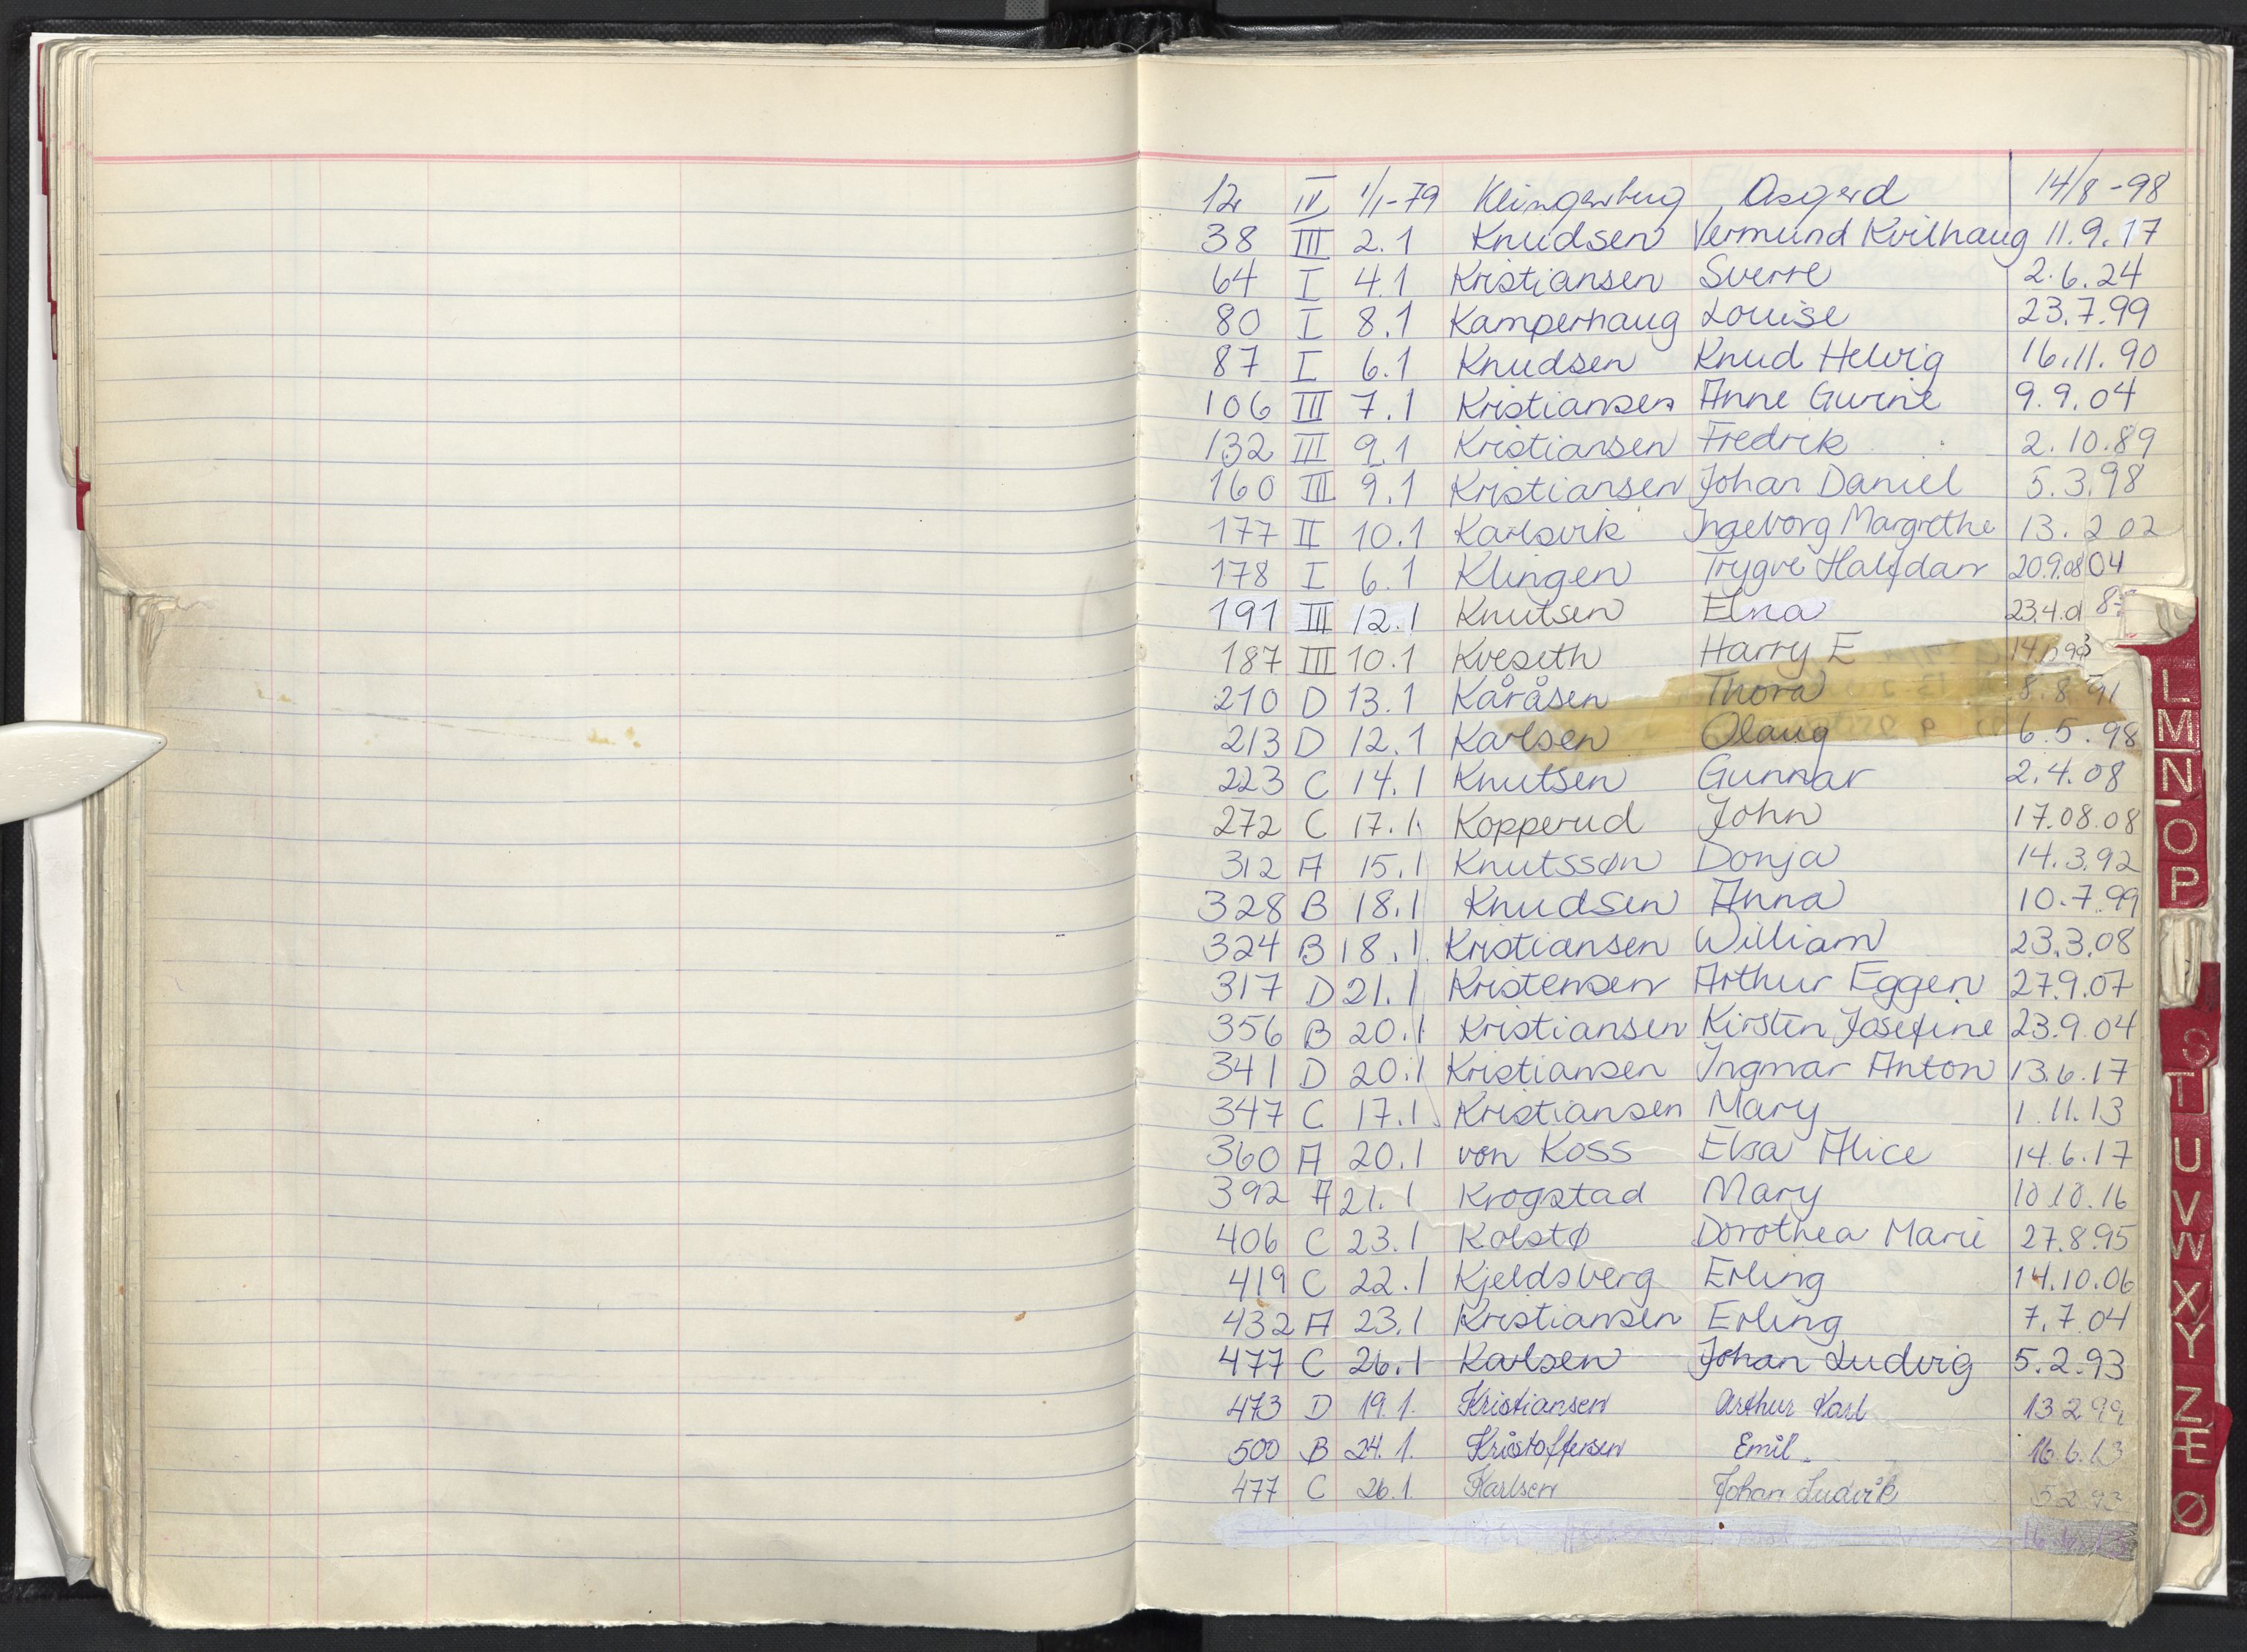 12 IV 1/1-79 Klingenberg Asgerd 14/8-98
38 III 2.1 Knudsen Vermund Kvilhaug 11.9.17
64 I 4.1 Kristiansen Sverre 2.6.24
80 I 8.1 Kamperhaug Louise 23.7.99
87 I 6.1 Knudsen Knud Helvig 16.11.90
106 III 7.1 Kristiansen Anne Gurine 9.9.04
132 III 9.1 Kristiansen Fredrik 2.10.89
160 III 9.1 Kristiansen Johan Daniel 5.3.98
177 II 10.1 Karlsvik Ingeborg Margrethe 13.2 02
178 I 6.1 Klingen Trygve Halfdan 20.9.08 04
191 III 12.1 Knutsen Elna 23.4.01
187 III 10.1 Kveseth Harry E
210 D 13.1 Kåråsen Thora 8.8 91
213 D 12.1 Karlsen Olaug 6.5.98
223 C 14.1 Knutsen Gunnar 2.4.08
272 C 17.1 Kopperud John 17.08.08
312 A 15.1 Knutssøn Donja 14.3.92
328 B 18.1 Knudsen Anna 10.7.99
324 B 18.1 Kristiansen William 23.3.08
317 D 21.1 Kristensen Arthur Eggen 27.9.07
356 B 20.1 Kristiansen Kirsten Josefine 23.9.04
341 D 20.1 Kristiansen Ingmar Anton 13.6.17
347 C 17.1 Kristiansen Mary 1.11.13
360 A 20.1 von Koss Elsa Alice 14.6.17
392 A 21.1 Krogstad Mary 10.10.16
406 C 23.1 Kolstø Dorothea Marie 27.8.95
419 C 22.1 Kjeldsberg Erling 14.10.06
432 A 23.1 Kristiansen Erling 7.7.04
477 C 26.1 Karlsen Johan Ludvig 5.2.93
473 D 19.1. Kristiansen Arthur Karl 13.2 99
500 B 24.1. Kristoffersen Emil 16.6.13
477 C 26.1. Karlsen Johan Ludvik 5 2 93
L
M
N
O
P
S
T
U
V
W
X
Y
Z
Æ
Ø